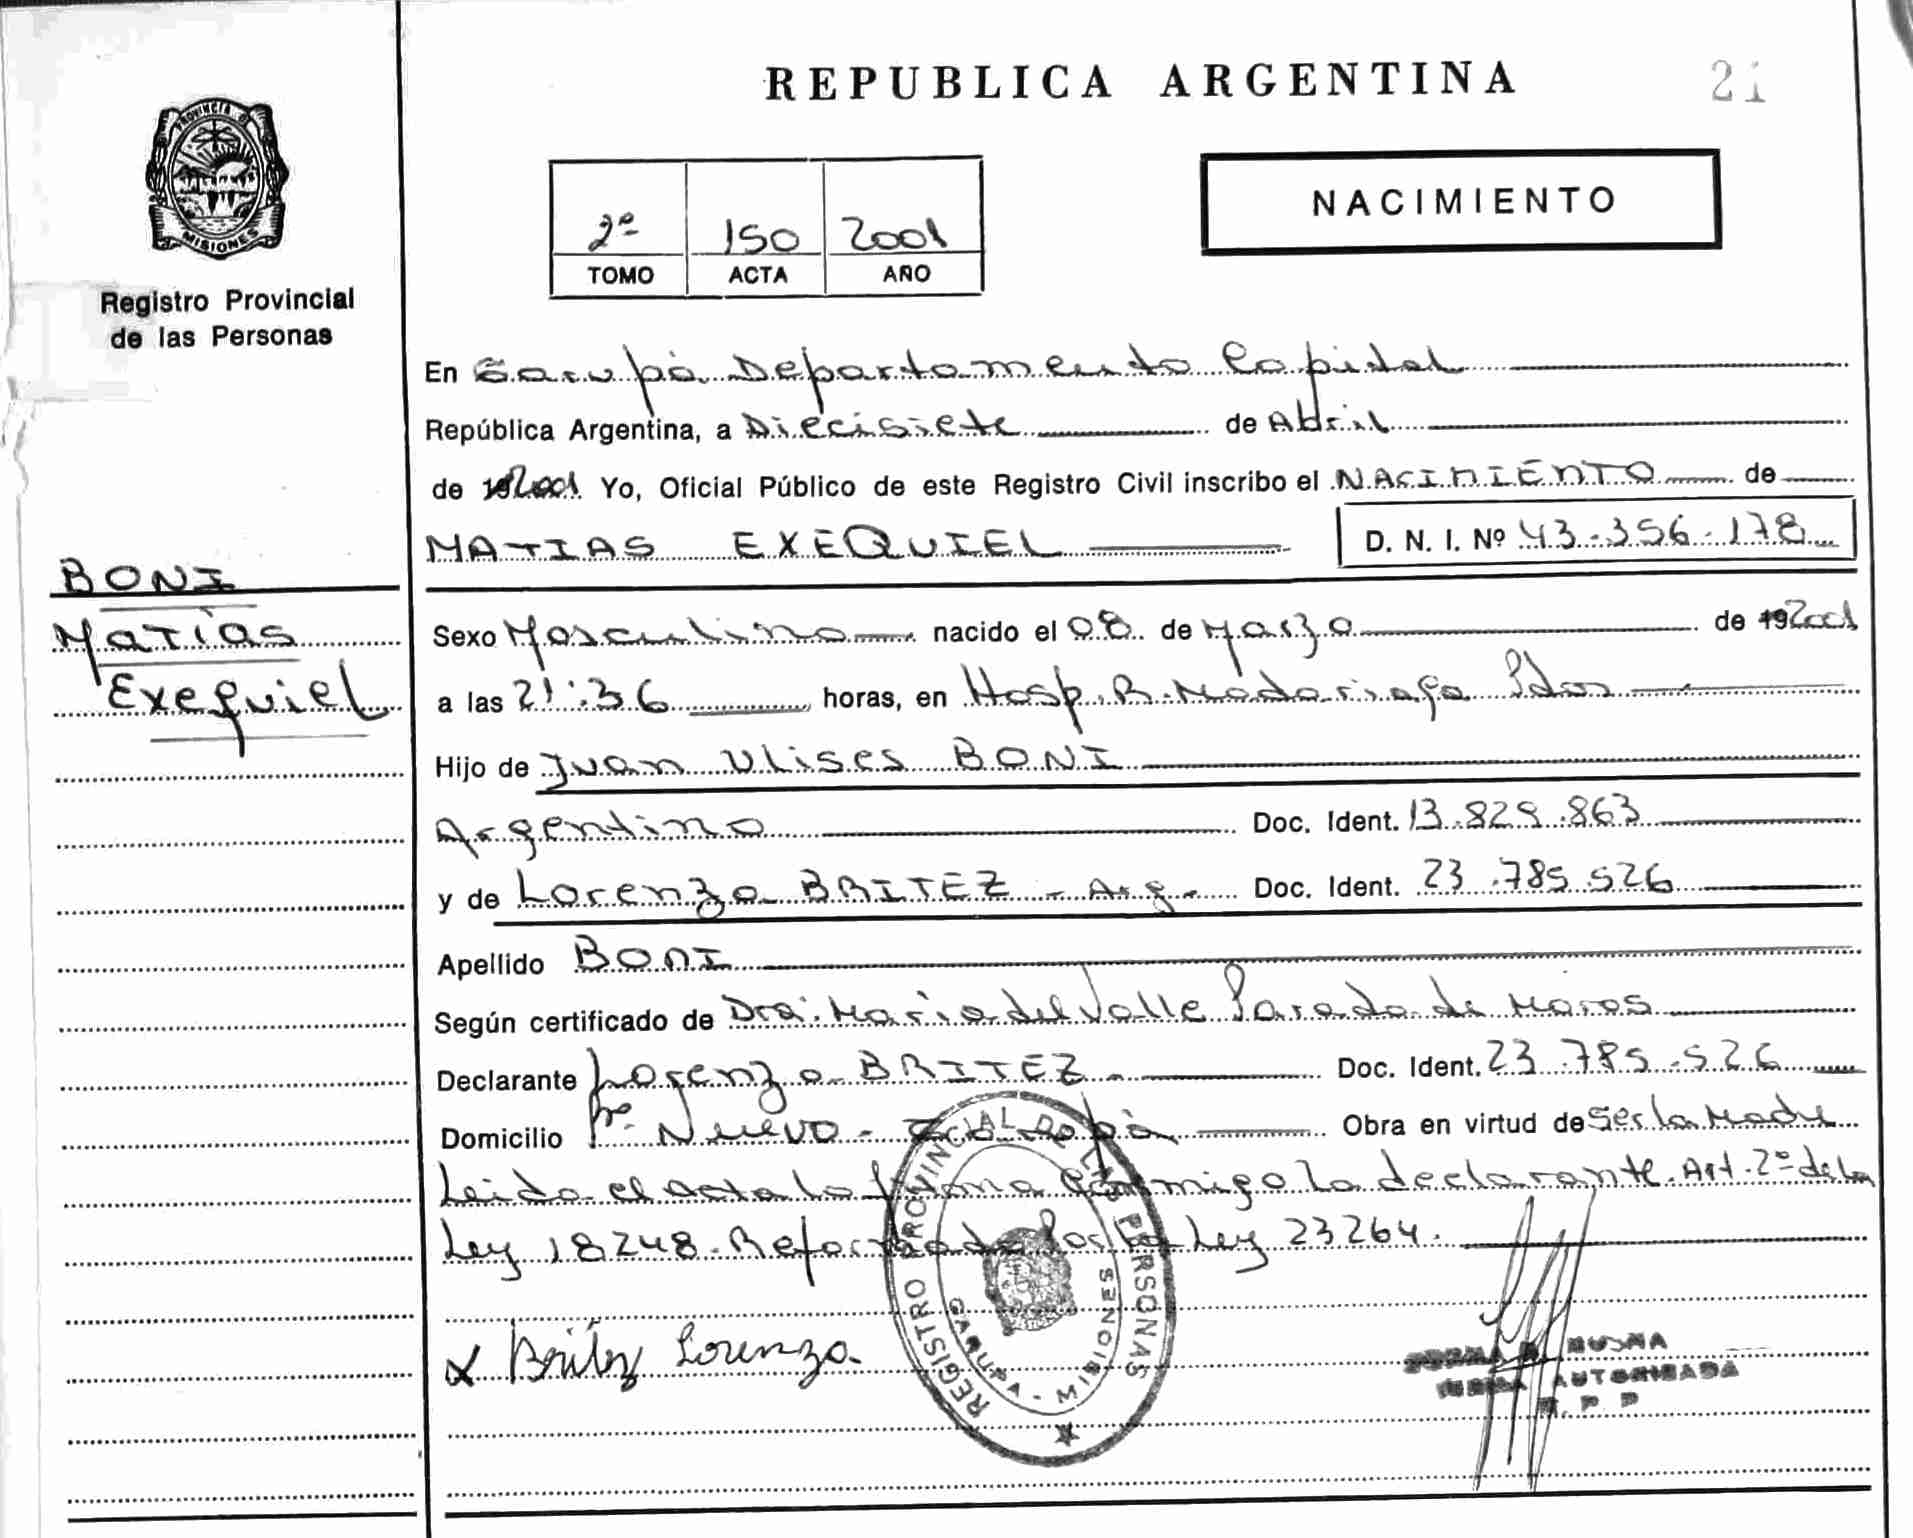 REPUBLICA ARGENTINA
21
PROVINCIA DE
MISIONES
Registro Provincial
de las Personas
2º 150 2001
TOMO ACTA AÑO
NACIMIENTO
En Garupá Departamento Capital
República Argentina, a Diecisiete de Abril
de 2001 Yo, Oficial Público de este Registro Civil inscribo el NACIMIENTO de
MATIAS EXEQUIEL D. N. I. Nº 43.356.178
BONI
Matías
Exequiel
Sexo Masculino nacido el 08 de Marzo de 192001
a las 21:36 horas, en Hosp. R. Madariaga Pdas
Hijo de Juan Ulises BONI
Argentino Doc. Ident. 13.829.863
y de Lorenza BRITEZ - Arg. Doc. Ident. 23.785.526
Apellido BONI
Según certificado de Dra. Maria del Valle Parada de Maros
Declarante Lorenza BRITEZ Doc. Ident. 23.785.526
Domicilio Bº Nuevo - Garupá Obra en virtud de Ser la Madre
Leida el acta la firma conmigo la declarante. Art. 2º de la
Ley 18248. Reformada Por la Ley 23264.
Britez Lorenza
REGISTRO PROVINCIAL DE LAS PERSONAS
GARUPA - MISIONES
AUTORIZADA
R. P. P